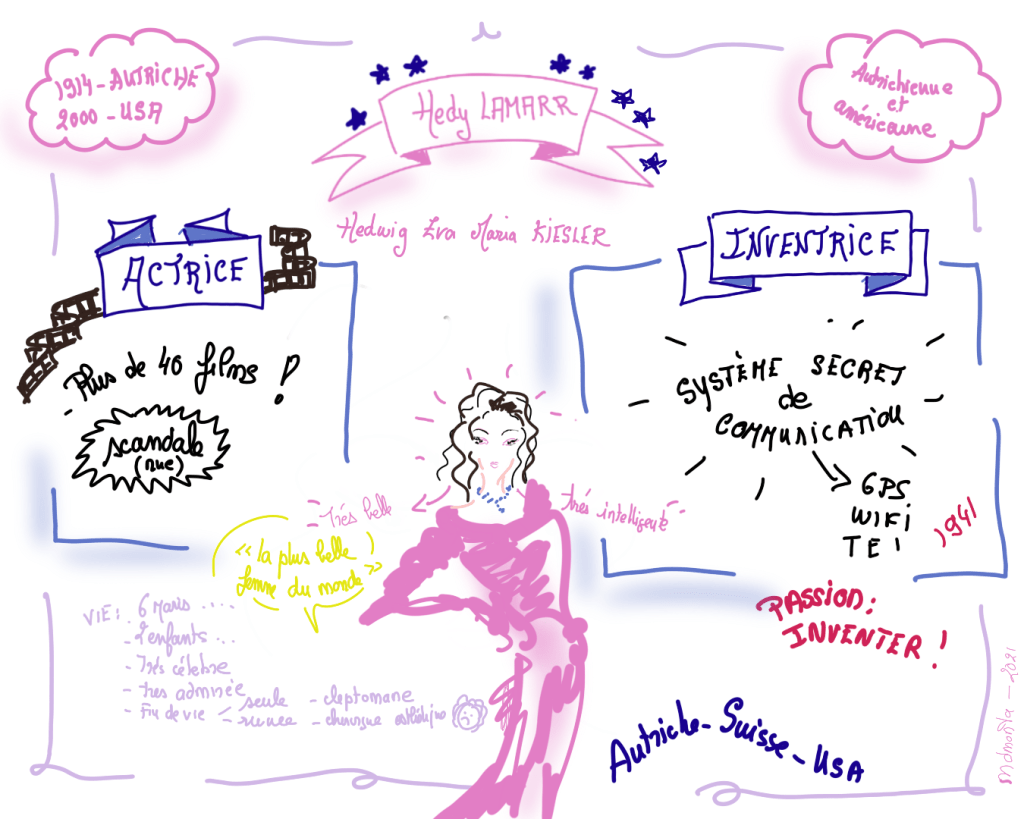 1914-AUTRICHE
2000-USA
Hedy LAMARR
Autrichienne
et
américaine
Hedwig Eva Maria KIESLER
ACTRICE
Plus de 40 films !
scandale
(nue)
INVENTRICE
SYSTÈME SECRET
de
COMMUNICATION
GPS
WIFI
TEL
1941
Très belle
très intelligente
"la plus belle
femme du monde"
PASSION:
INVENTER !
VIE: 6 Maris ....
- 2 enfants ...
- Très célèbre
- très admirée
- Fin de vie - seule - cleptomane
- ruinée - chirurgie esthétique
Autriche - Suisse - USA
mdmonta - 2021